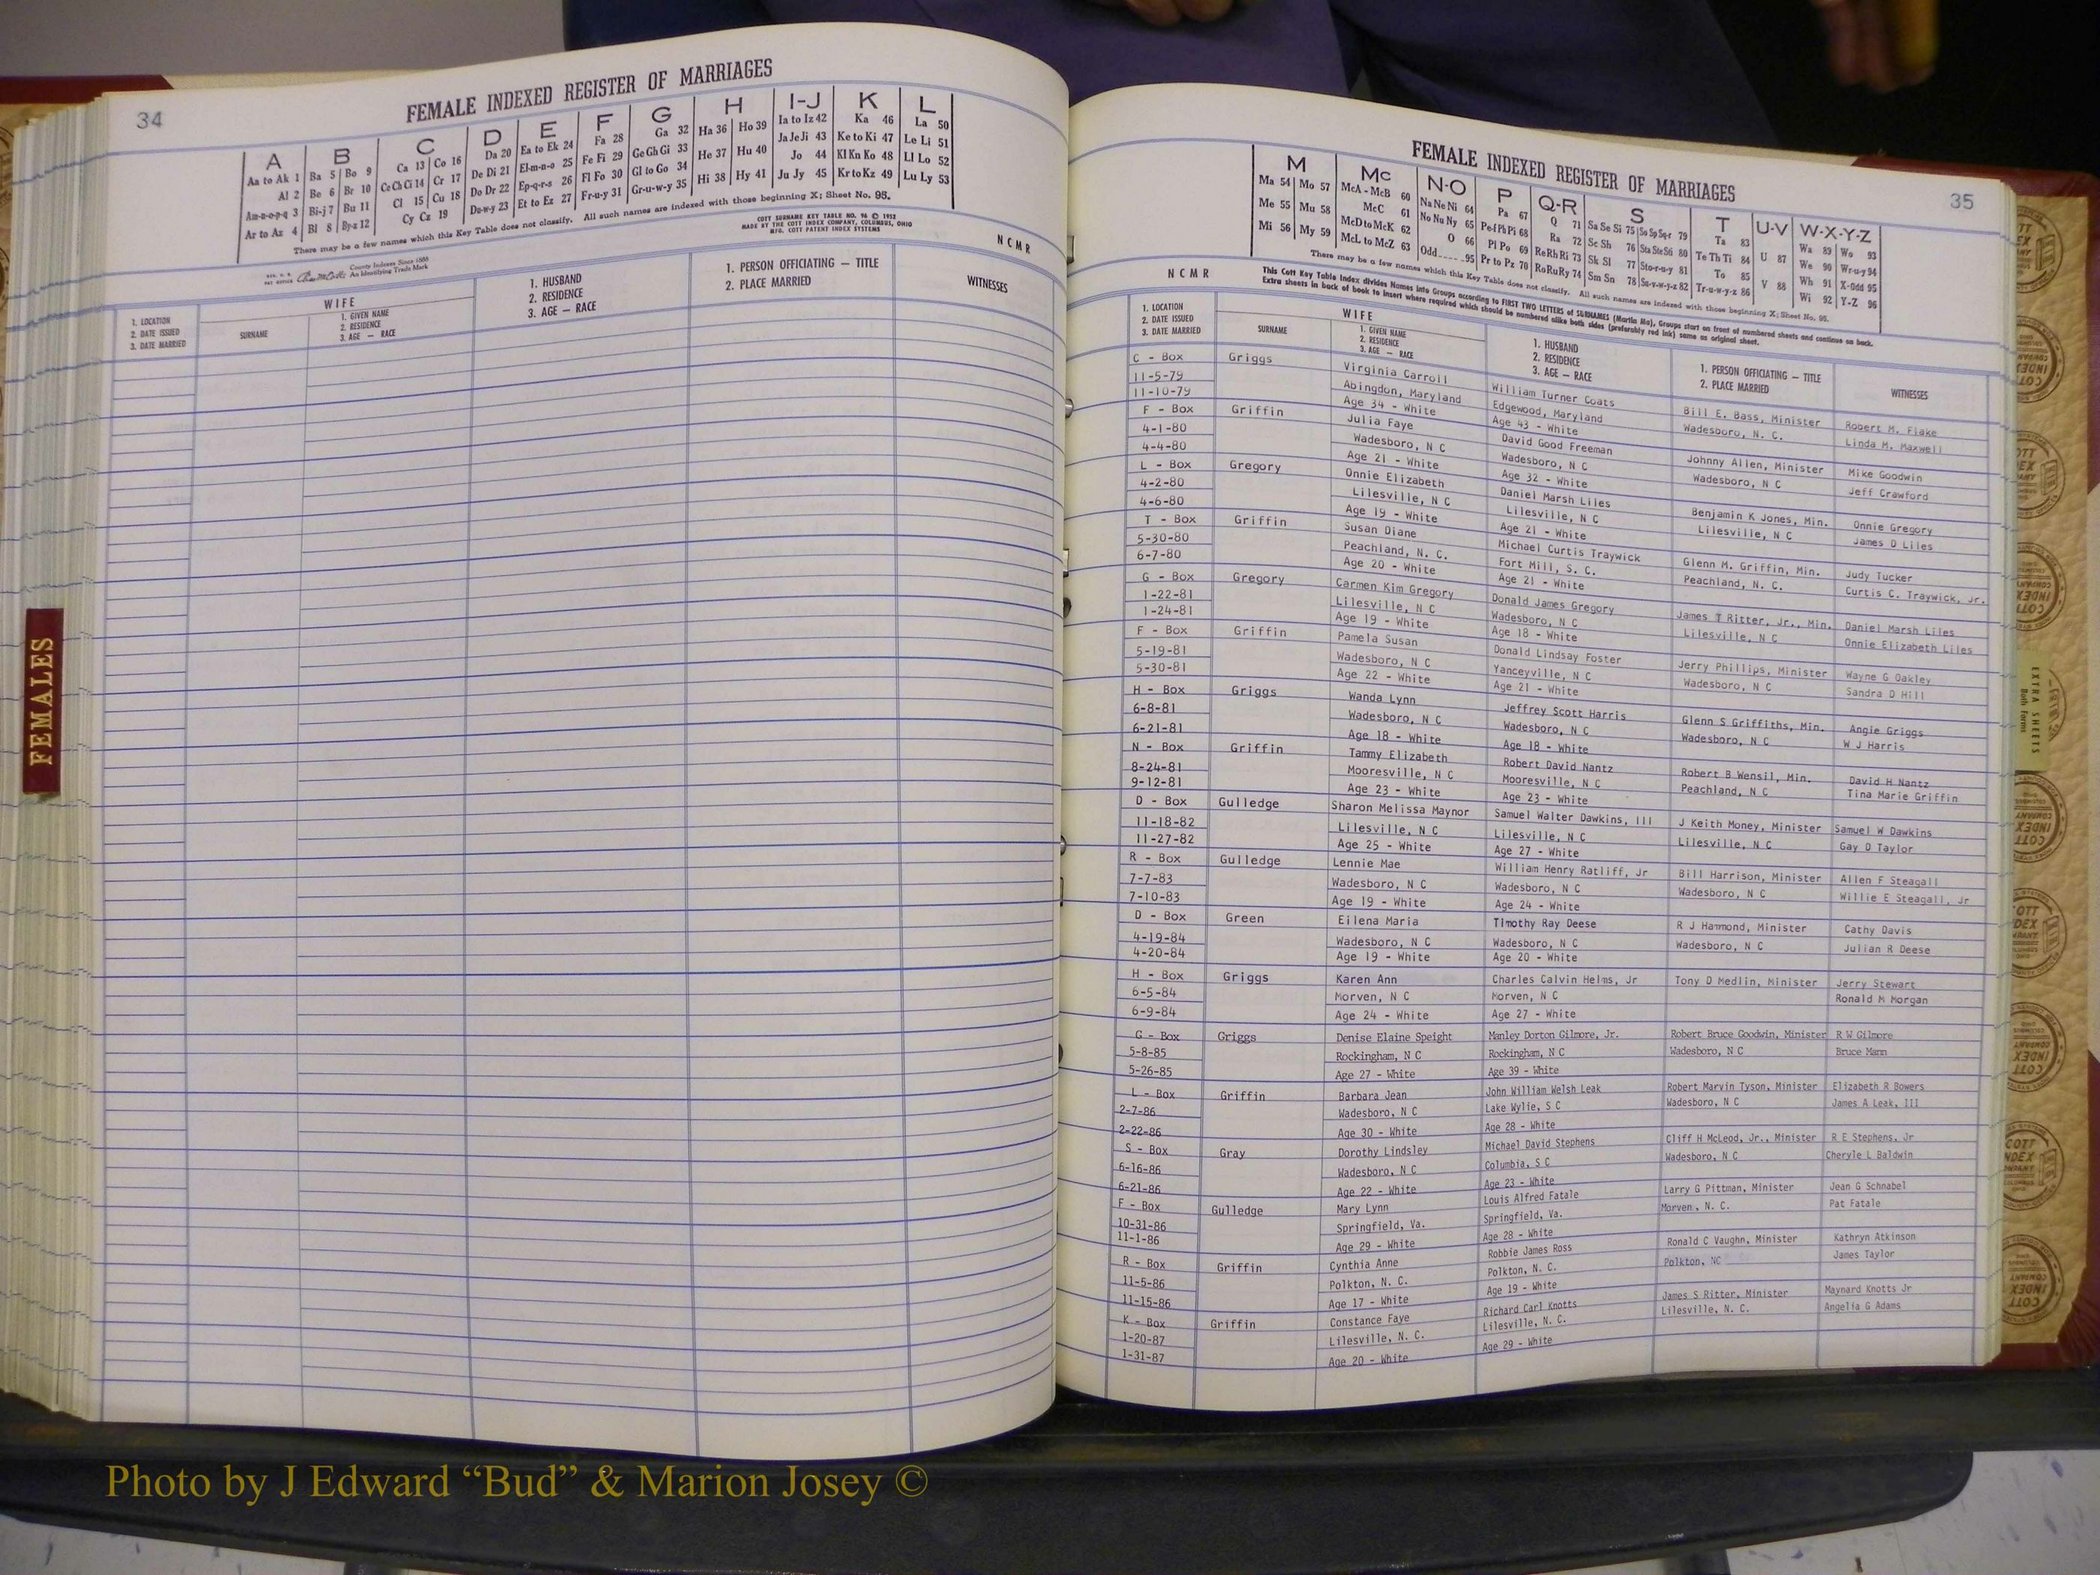 34
FEMALE INDEXED REGISTER OF MARRIAGES
A B C D E F G H I-J K L
Aa to Ak 1 Ba 5 Bo 9 Ca 13 Co 16 Da 20 Ea to Ek 24 Fa 28 Ga 32 Ha 36 Ho 39 Ia to Iz 42 Ka 46 La 50
Al 2 Be 6 Br 10 Ce Ch Ci 14 Cr 17 De Di 21 El-m-n-o 25 Fe Fi 29 Ge Gh Gi 33 He 37 Hu 40 Ja Je Ji 43 Ke to Ki 47 Le Li 51
Am-n-o-p-q 3 Bi-j 7 Bu 11 Cl 15 Cu 18 Do Dr 22 Ep-q-r-s 26 Fl Fo 30 Gl to Go 34 Hi 38 Hy 41 Jo 44 Kl Kn Ko 48 Ll Lo 52
Ar to Az 4 Bl 8 By-z 12 Cy Cz 19 Du-w-y 23 Et to Ez 27 Fr-u-y 31 Gr-u-w-y 35 Ju Jy 45 Kr to Kz 49 Lu Ly 53
There may be a few names which this Key Table does not classify. All such names are indexed with those beginning X; Sheet No. 95.
COTT SURNAME KEY TABLE NO. 96 © 1952
MADE BY THE COTT INDEX COMPANY, COLUMBUS, OHIO
MFG. COTT PATENT INDEX SYSTEMS
County Indexes Since 1888
An Identifying Trade Mark
NCMR
1. LOCATION
2. DATE ISSUED
3. DATE MARRIED
WIFE
SURNAME
1. GIVEN NAME
2. RESIDENCE
3. AGE — RACE
1. HUSBAND
2. RESIDENCE
3. AGE — RACE
1. PERSON OFFICIATING — TITLE
2. PLACE MARRIED
WITNESSES
FEMALES
35
FEMALE INDEXED REGISTER OF MARRIAGES
M Mc N-O P Q-R S T U-V W-X-Y-Z
Ma 54 Mo 57 McA - McB 60 Na Ne Ni 64 Pa 67 Q 71 Sa Se Si 75 So Sp Sq-r 79 Ta 83 U 87 Wa 89 Wo 93
Me 55 Mu 58 McC 61 No Nu Ny 65 Pe-f Ph Pi 68 Ra 72 Sc Sh 76 Sta Ste Sti 80 Te Th Ti 84 V 88 We 90 Wr-u-y 94
Mi 56 My 59 McD to McK 62 O 66 Pl Po 69 Re Rh Ri 73 Sk Sl 77 Sto-r-u-y 81 To 85 Wh 91 X-Odd 95
McL to McZ 63 Odd 95 Pr to Pz 70 Ro Ru Ry 74 Sm Sn 78 Su-v-w-y-z 82 Tr-u-w-y-z 86 Wi 92 Y-Z 96
There may be a few names which this Key Table does not classify. All such names are indexed with those beginning X; Sheet No. 95.
This Cott Key Table Index divides Names into Groups according to FIRST TWO LETTERS of SURNAMES (Martin Ma), Groups start on front of numbered sheets and continue on back.
Extra sheets in back of book to insert where required which should be numbered alike both sides (preferably red ink) same as original sheet.
NCMR
1. LOCATION
2. DATE ISSUED
3. DATE MARRIED
WIFE
SURNAME
1. GIVEN NAME
2. RESIDENCE
3. AGE — RACE
1. HUSBAND
2. RESIDENCE
3. AGE — RACE
1. PERSON OFFICIATING — TITLE
2. PLACE MARRIED
WITNESSES
C - Box Griggs Virginia Carroll William Turner Coats Bill E. Bass, Minister Robert M. Flake
11-5-79 Abingdon, Maryland Edgewood, Maryland Wadesboro, N. C. Linda M. Maxwell
11-10-79 Age 34 - White Age 43 - White
F - Box Griffin Julia Faye David Good Freeman Johnny Allen, Minister Mike Goodwin
4-1-80 Wadesboro, N C Wadesboro, N C Wadesboro, N C Jeff Crawford
4-4-80 Age 21 - White Age 32 - White
L - Box Gregory Onnie Elizabeth Daniel Marsh Liles Benjamin K Jones, Min. Onnie Gregory
4-2-80 Lilesville, N C Lilesville, N C Lilesville, N C James D Liles
4-6-80 Age 19 - White Age 21 - White
T - Box Griffin Susan Diane Michael Curtis Traywick Glenn M. Griffin, Min. Judy Tucker
5-30-80 Peachland, N. C. Fort Mill, S. C. Peachland, N. C. Curtis C. Traywick, Jr.
6-7-80 Age 20 - White Age 21 - White
G - Box Gregory Carmen Kim Gregory Donald James Gregory James T Ritter, Jr., Min. Daniel Marsh Liles
1-22-81 Lilesville, N C Wadesboro, N C Lilesville, N C Onnie Elizabeth Liles
1-24-81 Age 19 - White Age 18 - White
F - Box Griffin Pamela Susan Donald Lindsay Foster Jerry Phillips, Minister Wayne G Oakley
5-19-81 Wadesboro, N C Yanceyville, N C Wadesboro, N C Sandra D Hill
5-30-81 Age 22 - White Age 21 - White
H - Box Griggs Wanda Lynn Jeffrey Scott Harris Glenn S Griffiths, Min. Angie Griggs
6-8-81 Wadesboro, N C Wadesboro, N C Wadesboro, N C W J Harris
6-21-81 Age 18 - White Age 18 - White
N - Box Griffin Tammy Elizabeth Robert David Nantz Robert B Wensil, Min. David H Nantz
8-24-81 Mooresville, N C Mooresville, N C Peachland, N C Tina Marie Griffin
9-12-81 Age 23 - White Age 23 - White
D - Box Gulledge Sharon Melissa Maynor Samuel Walter Dawkins, III J Keith Money, Minister Samuel W Dawkins
11-18-82 Lilesville, N C Lilesville, N C Lilesville, N C Gay D Taylor
11-27-82 Age 25 - White Age 27 - White
R - Box Gulledge Lennie Mae William Henry Ratliff, Jr Bill Harrison, Minister Allen F Steagall
7-7-83 Wadesboro, N C Wadesboro, N C Wadesboro, N C Willie E Steagall, Jr
7-10-83 Age 19 - White Age 24 - White
D - Box Green Eilena Maria TImothy Ray Deese R J Hammond, Minister Cathy Davis
4-19-84 Wadesboro, N C Wadesboro, N C Wadesboro, N C Julian R Deese
4-20-84 Age 19 - White Age 20 - White
H - Box Griggs Karen Ann Charles Calvin Helms, Jr Tony D Medlin, Minister Jerry Stewart
6-5-84 Morven, N C Morven, N C Ronald M Morgan
6-9-84 Age 24 - White Age 27 - White
G - Box Griggs Denise Elaine Speight Manley Dorton Gilmore, Jr. Robert Bruce Goodwin, Minister R W Gilmore
5-8-85 Rockingham, N C Rockingham, N C Wadesboro, N C Bruce Mann
5-26-85 Age 27 - White Age 39 - White
L - Box Griffin Barbara Jean John William Welsh Leak Robert Marvin Tyson, Minister Elizabeth R Bowers
2-7-86 Wadesboro, N C Lake Wylie, S C Wadesboro, N C James A Leak, III
2-22-86 Age 30 - White Age 28 - White
S - Box Gray Dorothy Lindsley Michael David Stephens Cliff H McLeod, Jr., Minister R E Stephens, Jr
6-16-86 Wadesboro, N C Columbia, S C Wadesboro, N C Cheryle L Baldwin
6-21-86 Age 22 - White Age 23 - White
F - Box Gulledge Mary Lynn Louis Alfred Fatale Larry G Pittman, Minister Jean G Schnabel
10-31-86 Springfield, Va. Springfield, Va. Morven, N. C. Pat Fatale
11-1-86 Age 29 - White Age 28 - White
R - Box Griffin Cynthia Anne Robbie James Ross Ronald C Vaughn, Minister Kathryn Atkinson
11-5-86 Polkton, N. C. Polkton, N. C. Polkton, NC James Taylor
11-15-86 Age 17 - White Age 19 - White
K - Box Griffin Constance Faye Richard Carl Knotts James S Ritter, Minister Maynard Knotts Jr
1-20-87 Lilesville, N. C. Lilesville, N. C. Lilesville, N. C. Angelia G Adams
1-31-87 Age 20 - White Age 29 - White
EXTRA SHEETS
Both Forms
Photo by J Edward “Bud” & Marion Josey ©